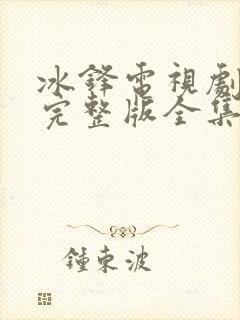 冰鋒電視劇
完整版全集
鍾東波